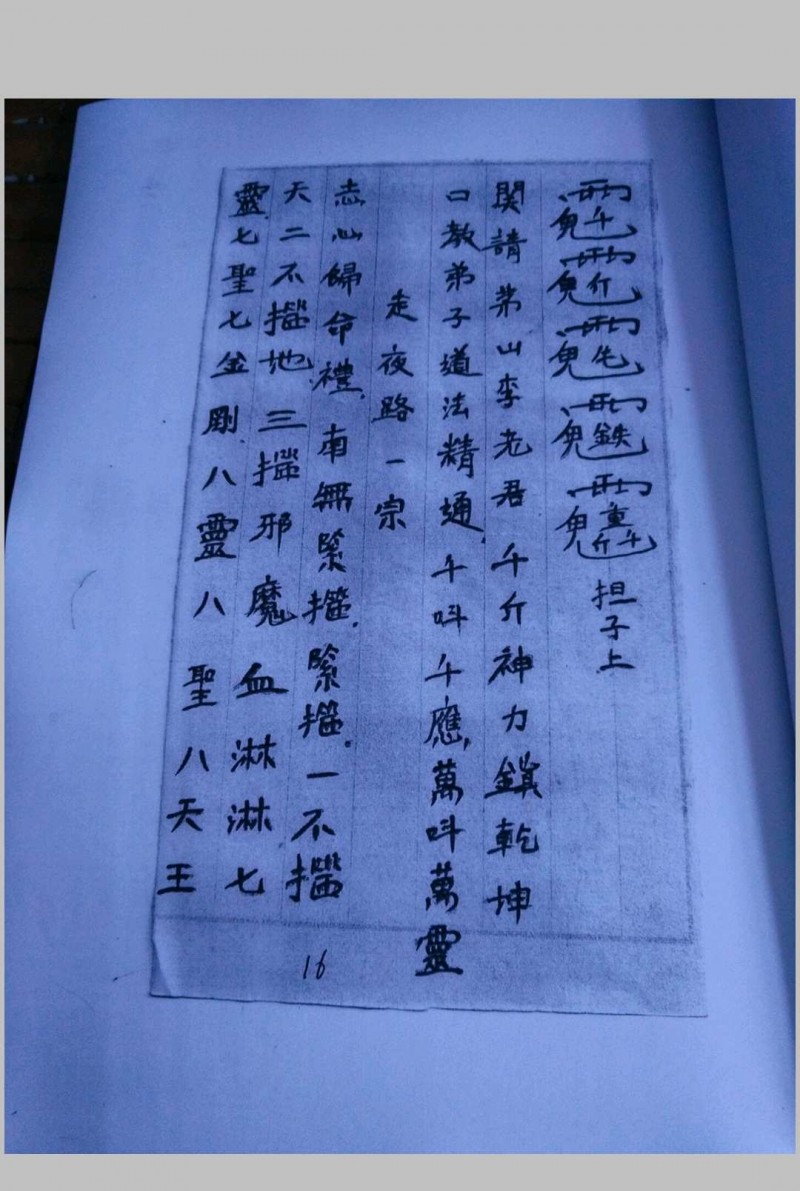 担子上
関請茅山李老君千斤神力鎮乾坤
口教弟子道法精通,千叫千應,萬叫萬靈
走夜路一宗
志心歸命禮,南無緊 緊 一不
天二不 地三 邪魔血淋淋七
靈七聖七金剛八靈八聖八天王
16